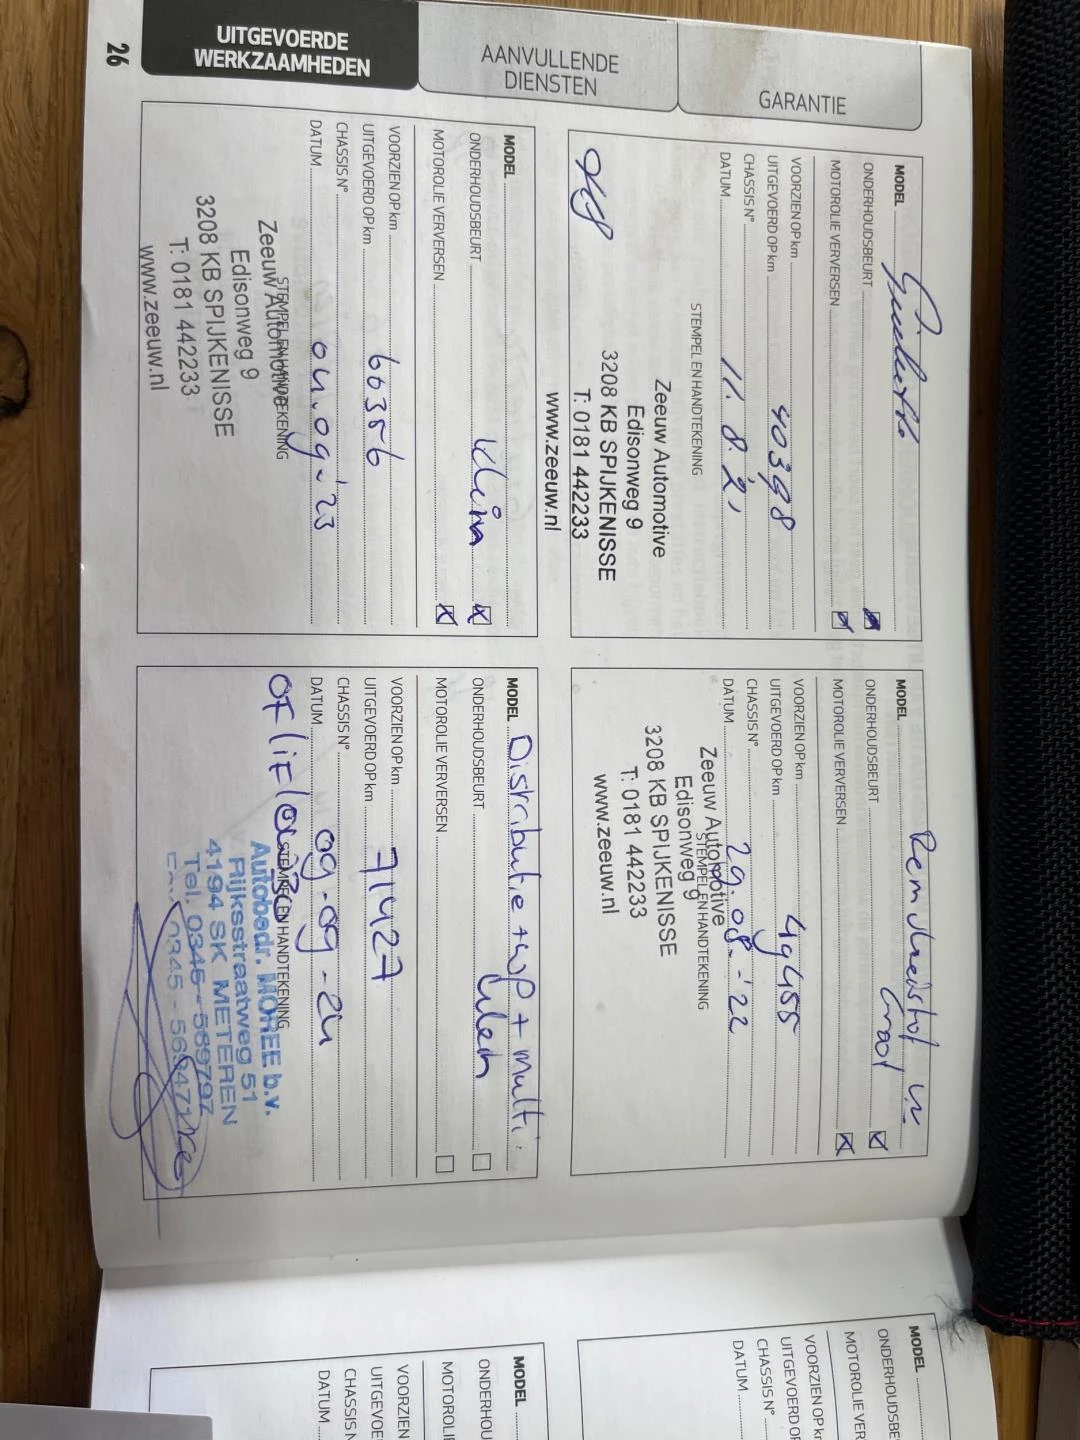 26
UITGEVOERDE
WERKZAAMHEDEN
AANVULLENDE
DIENSTEN
GARANTIE
MODEL
ONDERHOUDSBEURT
MOTOROLIE VERVERSEN
VOORZIEN OP km
UITGEVOERD OP km 40398
CHASSIS N°
DATUM 11.8.21
STEMPEL EN HANDTEKENING
Zeeuw Automotive
Edisonweg 9
3208 KB SPIJKENISSE
T: 0181 442233
www.zeeuw.nl
MODEL Remvloeistof
ONDERHOUDSBEURT Groot
MOTOROLIE VERVERSEN
VOORZIEN OP km
UITGEVOERD OP km 49455
CHASSIS N°
DATUM 29.08.-'22
STEMPEL EN HANDTEKENING
Zeeuw Automotive
Edisonweg 9
3208 KB SPIJKENISSE
T: 0181 442233
www.zeeuw.nl
MODEL
ONDERHOUDSBEURT klein
MOTOROLIE VERVERSEN
VOORZIEN OP km
UITGEVOERD OP km 60356
CHASSIS N°
DATUM 04.09-'23
STEMPEL EN HANDTEKENING
Zeeuw Automotive
Edisonweg 9
3208 KB SPIJKENISSE
T: 0181 442233
www.zeeuw.nl
MODEL Distributie + WP + Multi.
ONDERHOUDSBEURT klein
MOTOROLIE VERVERSEN
VOORZIEN OP km
UITGEVOERD OP km 71427
CHASSIS N°
DATUM 09-09-24
STEMPEL EN HANDTEKENING
OF
Autobedr. MOREE b.v.
Rijksstraatweg 51
4194 SK METEREN
Tel. 0345 - 569797
0345 - 569471
MODEL
ONDERHOUDSBE
MOTOROLIE VER
VOORZIEN OP km
UITGEVOERD OP
CHASSIS N°
DATUM
MODEL
ONDERHOU
MOTOROLIE
VOORZIEN
UITGEVOE
CHASSIS N
DATUM